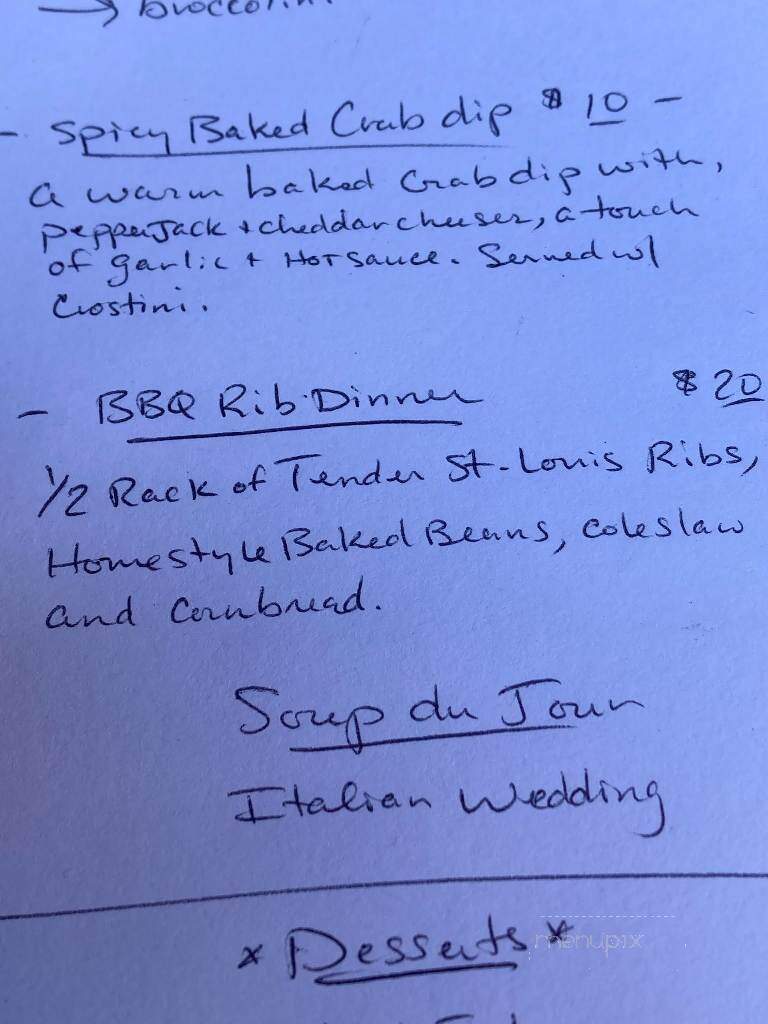 → broccolini
- Spicy Baked Crab dip $10 -
a warm baked Crab dip with,
pepperJack + cheddar cheeses, a touch
of garlic + Hot sauce. Served w/
Crostini.
- BBQ Rib Dinner $20
1/2 Rack of Tender St-Louis Ribs,
Homestyle Baked Beans, coleslaw
and Cornbread.
Soup du Jour
Italian Wedding
* Desserts *
menupix